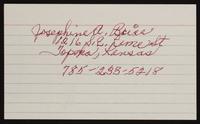 Josephine A. Boiss
1216 S.E. Lime St
Topeka, Kansas
785-233-5218